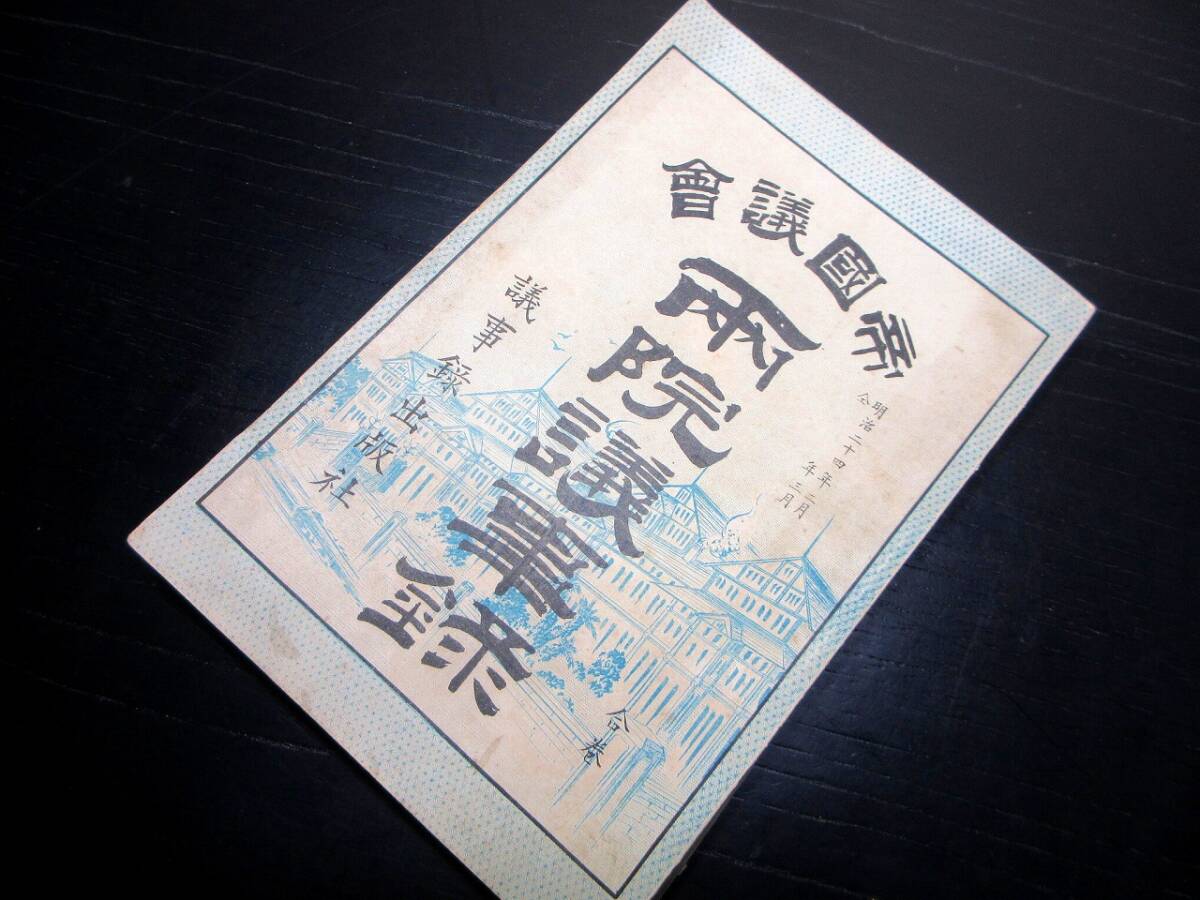 帝國議會
明治二十四年二月
仝年三月
兩院議事錄
合卷
議事錄出版社